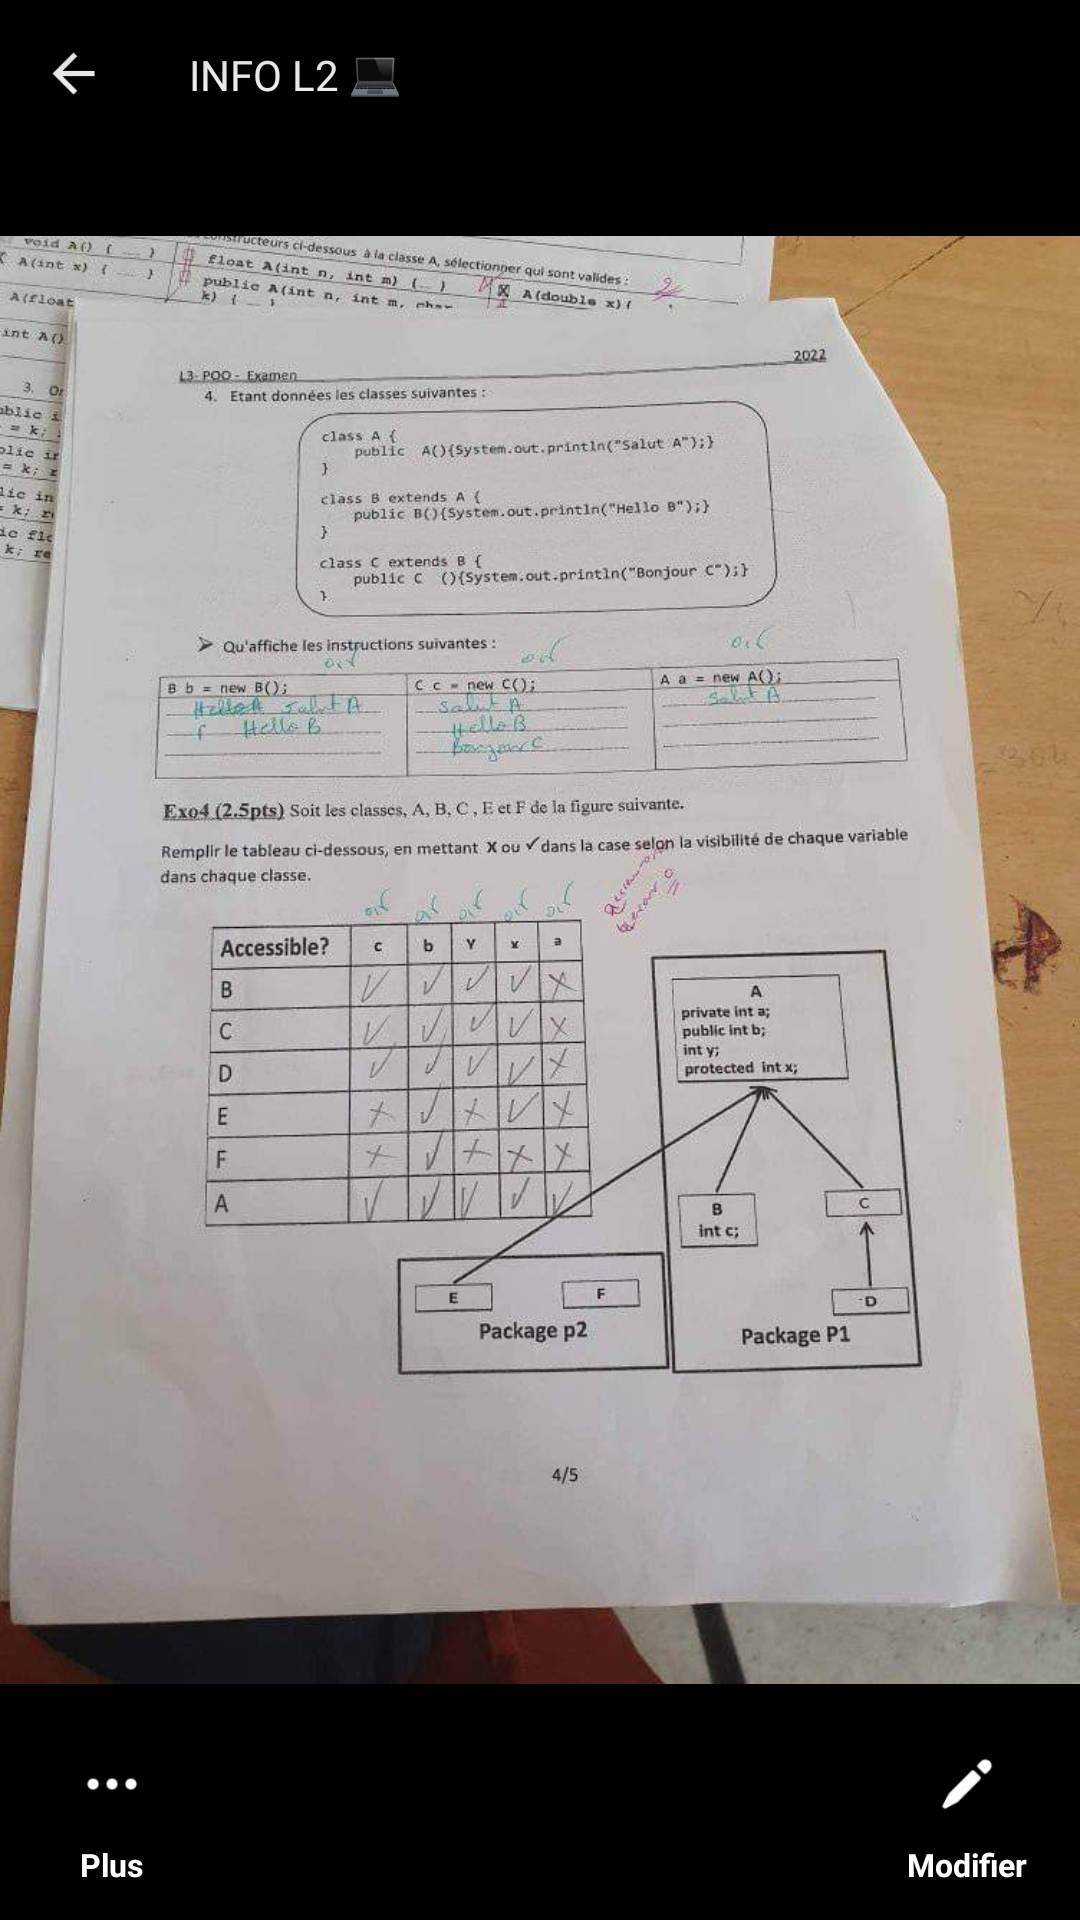 INFO L2
void A() { ... }
A(int x) { ... }
A(float
int A()
constructeurs ci-dessous à la classe A, sélectionner qui sont valides :
float A(int n, int m) {... }
public A(int n, int m, char
k) { ... }
A(double x){
2
3. On
= k;
k; re
L3- POO - Examen
2022
4. Etant données les classes suivantes :
class A {
public A(){System.out.println("Salut A");}
}
class B extends A {
public B(){System.out.println("Hello B");}
}
class C extends B {
public C (){System.out.println("Bonjour C");}
}
➢ Qu'affiche les instructions suivantes :
B b = new B();
C c = new C();
A a = new A();
Salut A
Hello B
Salut A
Hello B
Bonjour C
Salut A
Exo4 (2.5pts) Soit les classes, A, B, C , E et F de la figure suivante.
Remplir le tableau ci-dessous, en mettant X ou ✓ dans la case selon la visibilité de chaque variable
dans chaque classe.
Accessible? c b Y x a
B ✓ ✓ ✓ ✓ X
C ✓ ✓ ✓ ✓ X
D ✓ ✓ ✓ ✓ X
E X ✓ X ✓ X
F X ✓ X X X
A ✓ ✓ ✓ ✓ ✓
A
private int a;
public int b;
int y;
protected int x;
B
int c;
C
D
Package P1
E
F
Package p2
4/5
Plus
Modifier